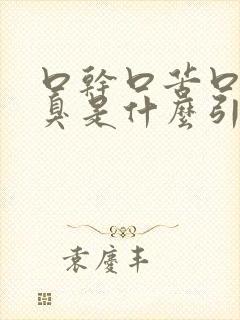 口幹口苦口
臭是什麼引
袁慶丰